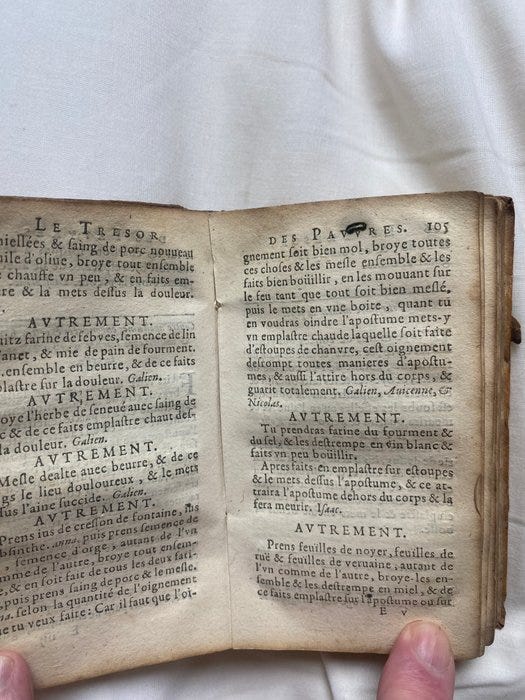 LE TRESOR
miellées & saing de porc nouueau
huile d'oliue, broye tout ensemble
chauffe vn peu, & en faits em-
& la mets dessus la douleur.
AVTREMENT.
farine de febves, semence de lin
anet, & mie de pain de fourment.
ensemble en beurre, & de ce faits
emplastre sur la douleur. Galien.
AVTREMENT.
broye l'herbe de seneué auec saing de
& de ce faits emplastre chaut des-
la douleur. Galien.
AVTREMENT.
Mesle dealte auec beurre, & de ce
le lieu douloureux, & le mets
dessus l'aine succide. Galien.
AVTREMENT.
Prens ius de cresson de fontaine, ius
d'absinthe. anna. puis prens semence de
semence d'orge, autant de l'vn
comme de l'autre, broye tout ensem-
& en soit fait de tous les deux fari-
puis prens saing de porc & le mesle.
selon la quantité de l'oignement
que tu veux faite: Car il faut que l'oi-
DES PAVVRES. 105
gnement soit bien mol, broye toutes
ces choses & les mesle ensemble & les
faits bien boüillir, en les mouuant sur
le feu tant que tout soit bien meslé.
puis le mets en vne boite, quant tu
en voudras oindre l'apostume mets-y
vn emplastre chaude laquelle soit faite
d'estoupes de chanvre, cest oignement
desrompt toutes manieres d'apostu-
mes, & aussi l'attire hors du corps, &
guarit totalement. Galien, Auicenne, &
Nicolas.
AVTREMENT.
Tu prendras farine du fourment &
du sel, & les destrempe en vin blanc &
faits vn peu boüillir.
Apres faits en emplastre sur estoupes
& le mets dessus l'apostume, & ce at-
traira l'apostume dehors du corps & la
fera meurir. Isaac.
AVTREMENT.
Prens feuilles de noyer, feuilles de
ruë & feuilles de veruaine, autant de
l'vn comme de l'autre, broye-les en-
semble & les destrempe en miel, & de
ce faits emplastre sur l'apostume ou sur
E v